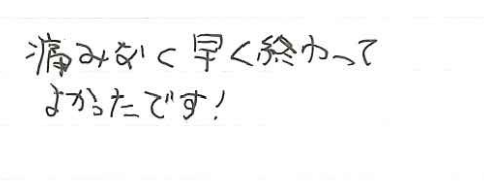 痛みなく早く終わって
よかったです!